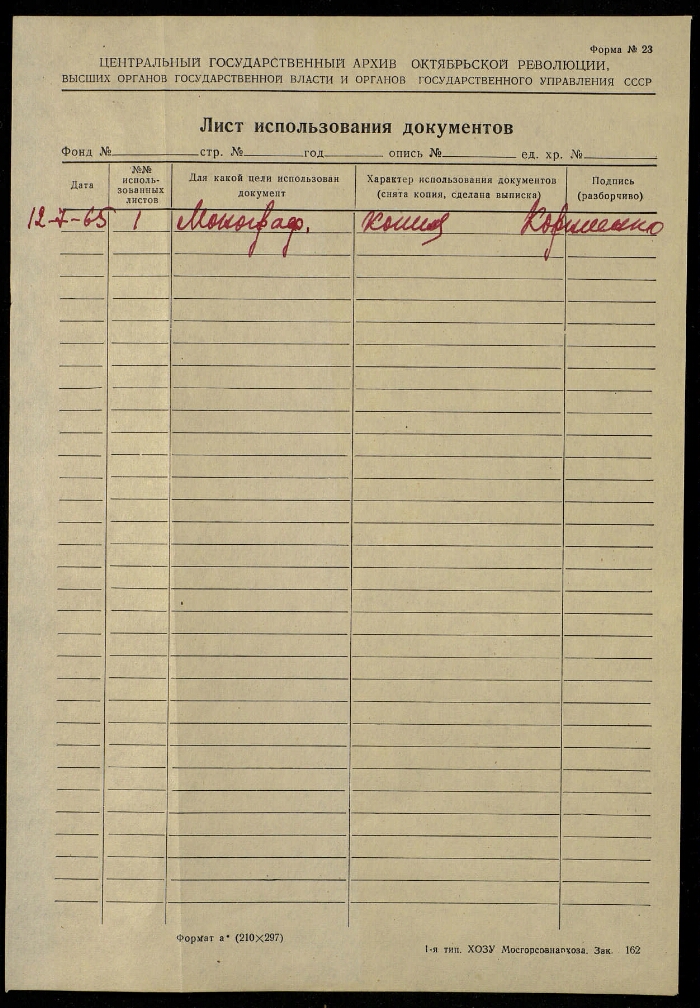 Форма № 23
ЦЕНТРАЛЬНЫЙ ГОСУДАРСТВЕННЫЙ АРХИВ ОКТЯБРЬСКОЙ РЕВОЛЮЦИИ,
ВЫСШИХ ОРГАНОВ ГОСУДАРСТВЕННОЙ ВЛАСТИ И ОРГАНОВ ГОСУДАРСТВЕННОГО УПРАВЛЕНИЯ СССР
Лист использования документов
Фонд № стр. № год опись № ед. хр. №
Дата
№№
исполь-
зованных
листов
Для какой цели использован
документ
Характер использования документов
(снята копия, сделана выписка)
Подпись
(разборчиво)
12-7-65 1 Монограф. копия
Формат а⁴ (210×297)
1-я тип. ХОЗУ Мосгорсовнархоза. Зак. 162